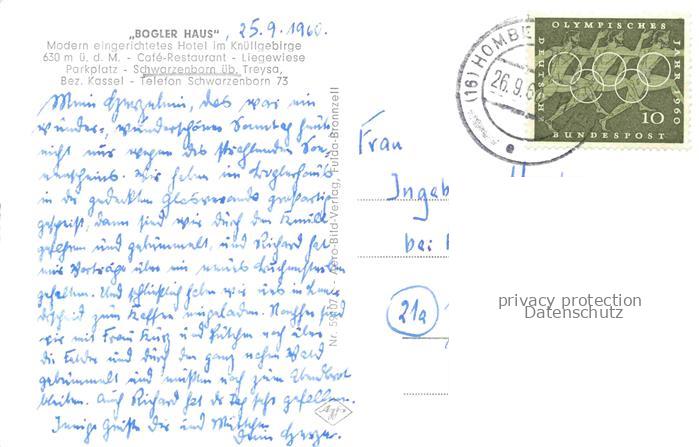 „BOGLER HAUS“, 25.9.1960.
Modern eingerichtetes Hotel im Knüllgebirge
630 m ü. d. M. - Café-Restaurant - Liegewiese
Parkplatz - Schwarzenborn üb. Treysa,
Bez. Kassel - Telefon Schwarzenborn 73
Mein Herzelmü, das war ein
wunder-, wunderschöner Sonntag heute
nicht nur wegen des strahlenden Son-
nenscheins. Wir haben im Boglerhaus
in der gedeckten Glasveranda großartig
gespeist, dann sind wir durch den Knüll
gefahren und gebummelt, und Richard hat
mir Vorträge über ein neues
gehalten. Und schließlich haben wir uns in
zum Kaffee eingeladen. Nachher sind
wir mit Frau Kurz und noch über
die Felder und durch den ganz nahen Wald
gebummelt und mußten noch zum Abendbrot
bleiben. Auch Richard hat der Tag sehr gefallen.
Innige Grüße Dir und
Dein
Agfa
Foto-Bild-Verlag, Fulda-Bronnzell
Frau
Ingeb
bei
21a
(16) HOMBE
26.9.6
OLYMPISCHES
JAHR 1960
DEUTSCHE
10
BUNDESPOST
privacy protection
Datenschutz